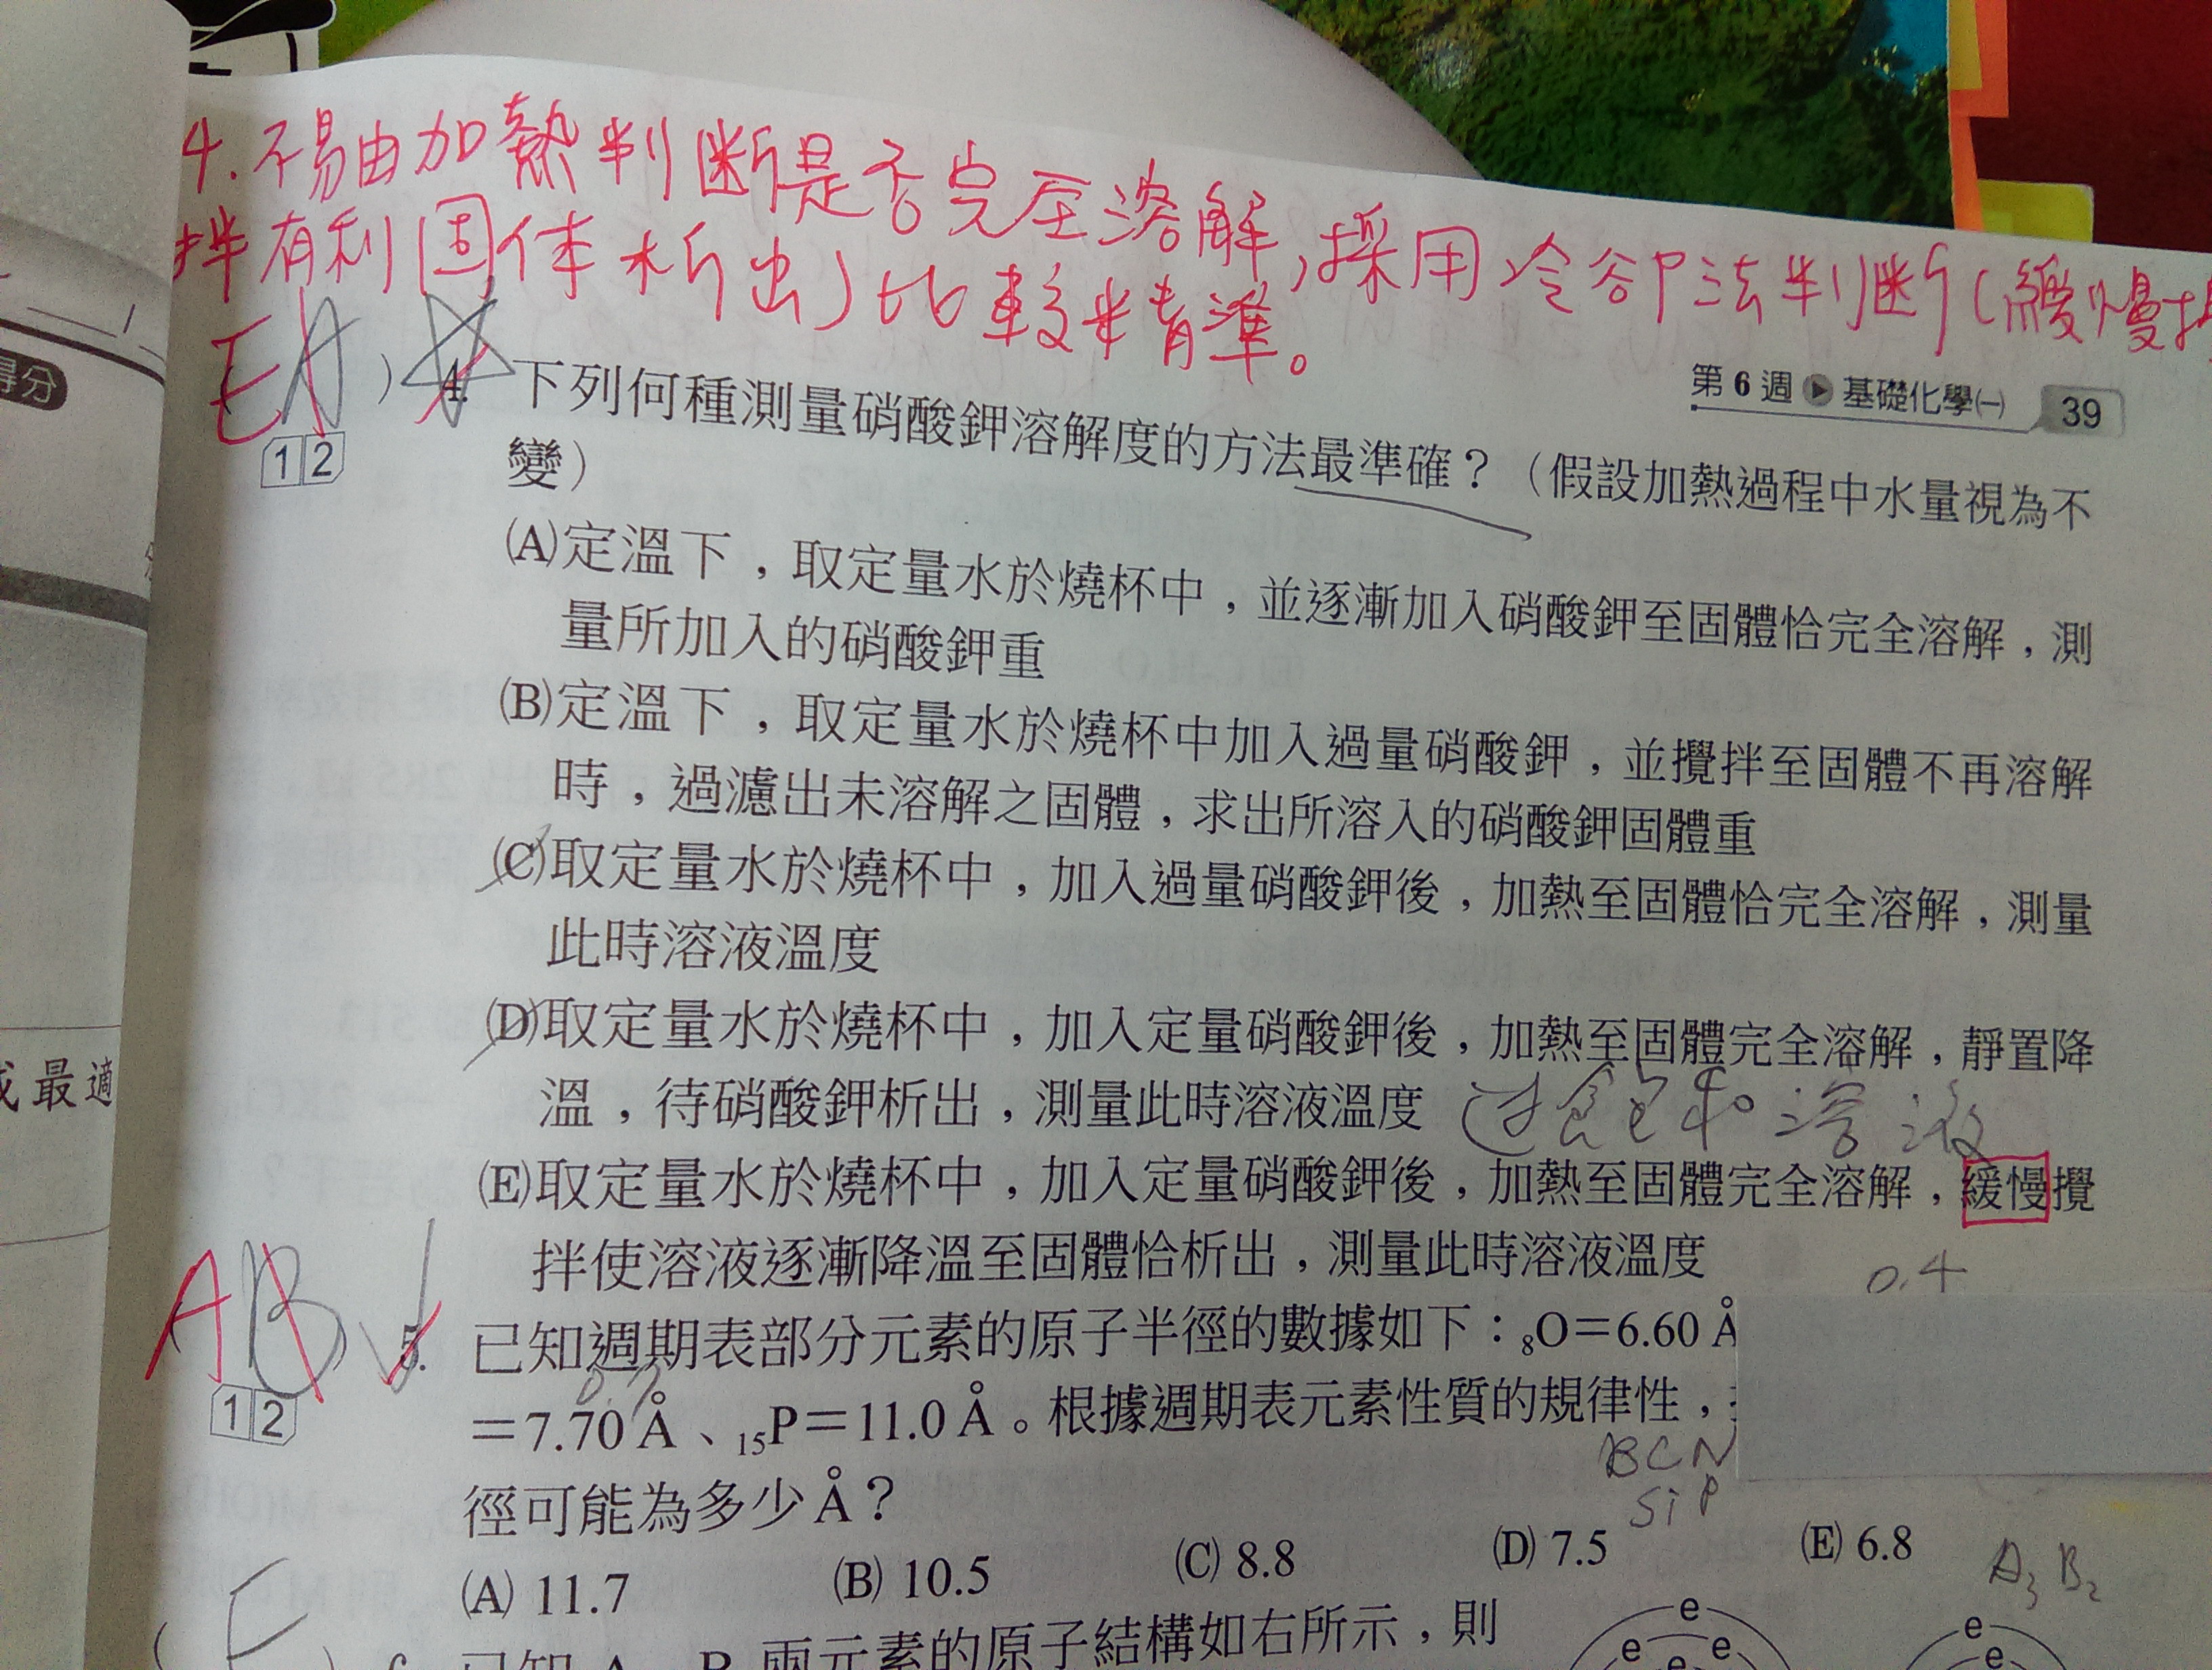 4. 不易由加熱判斷是否完全溶解,採用冷卻法判斷(緩慢攪
拌有利固体析出)比較精準。
得分
第6週 ▶ 基礎化學㈠ 39
EA ) 4. 下列何種測量硝酸鉀溶解度的方法最準確?(假設加熱過程中水量視為不
12 變)
(A)定溫下,取定量水於燒杯中,並逐漸加入硝酸鉀至固體恰完全溶解,測
量所加入的硝酸鉀重
(B)定溫下,取定量水於燒杯中加入過量硝酸鉀,並攪拌至固體不再溶解
時,過濾出未溶解之固體,求出所溶入的硝酸鉀固體重
(C)取定量水於燒杯中,加入過量硝酸鉀後,加熱至固體恰完全溶解,測量
此時溶液溫度
(D)取定量水於燒杯中,加入定量硝酸鉀後,加熱至固體完全溶解,靜置降
溫,待硝酸鉀析出,測量此時溶液溫度 過飽和溶液
最適
(E)取定量水於燒杯中,加入定量硝酸鉀後,加熱至固體完全溶解,緩慢攪
拌使溶液逐漸降溫至固體恰析出,測量此時溶液溫度
0.4
AB 5. 已知週期表部分元素的原子半徑的數據如下:₈O=6.60 Å
12 =7.70 Å、₁₅P=11.0 Å。根據週期表元素性質的規律性,
B C N
Si P
徑可能為多少 Å?
(A) 11.7 (B) 10.5 (C) 8.8 (D) 7.5 (E) 6.8
A₃ B₂
( E ) 6. 已知 A、B 兩元素的原子結構如右所示,則
e e e e
e e